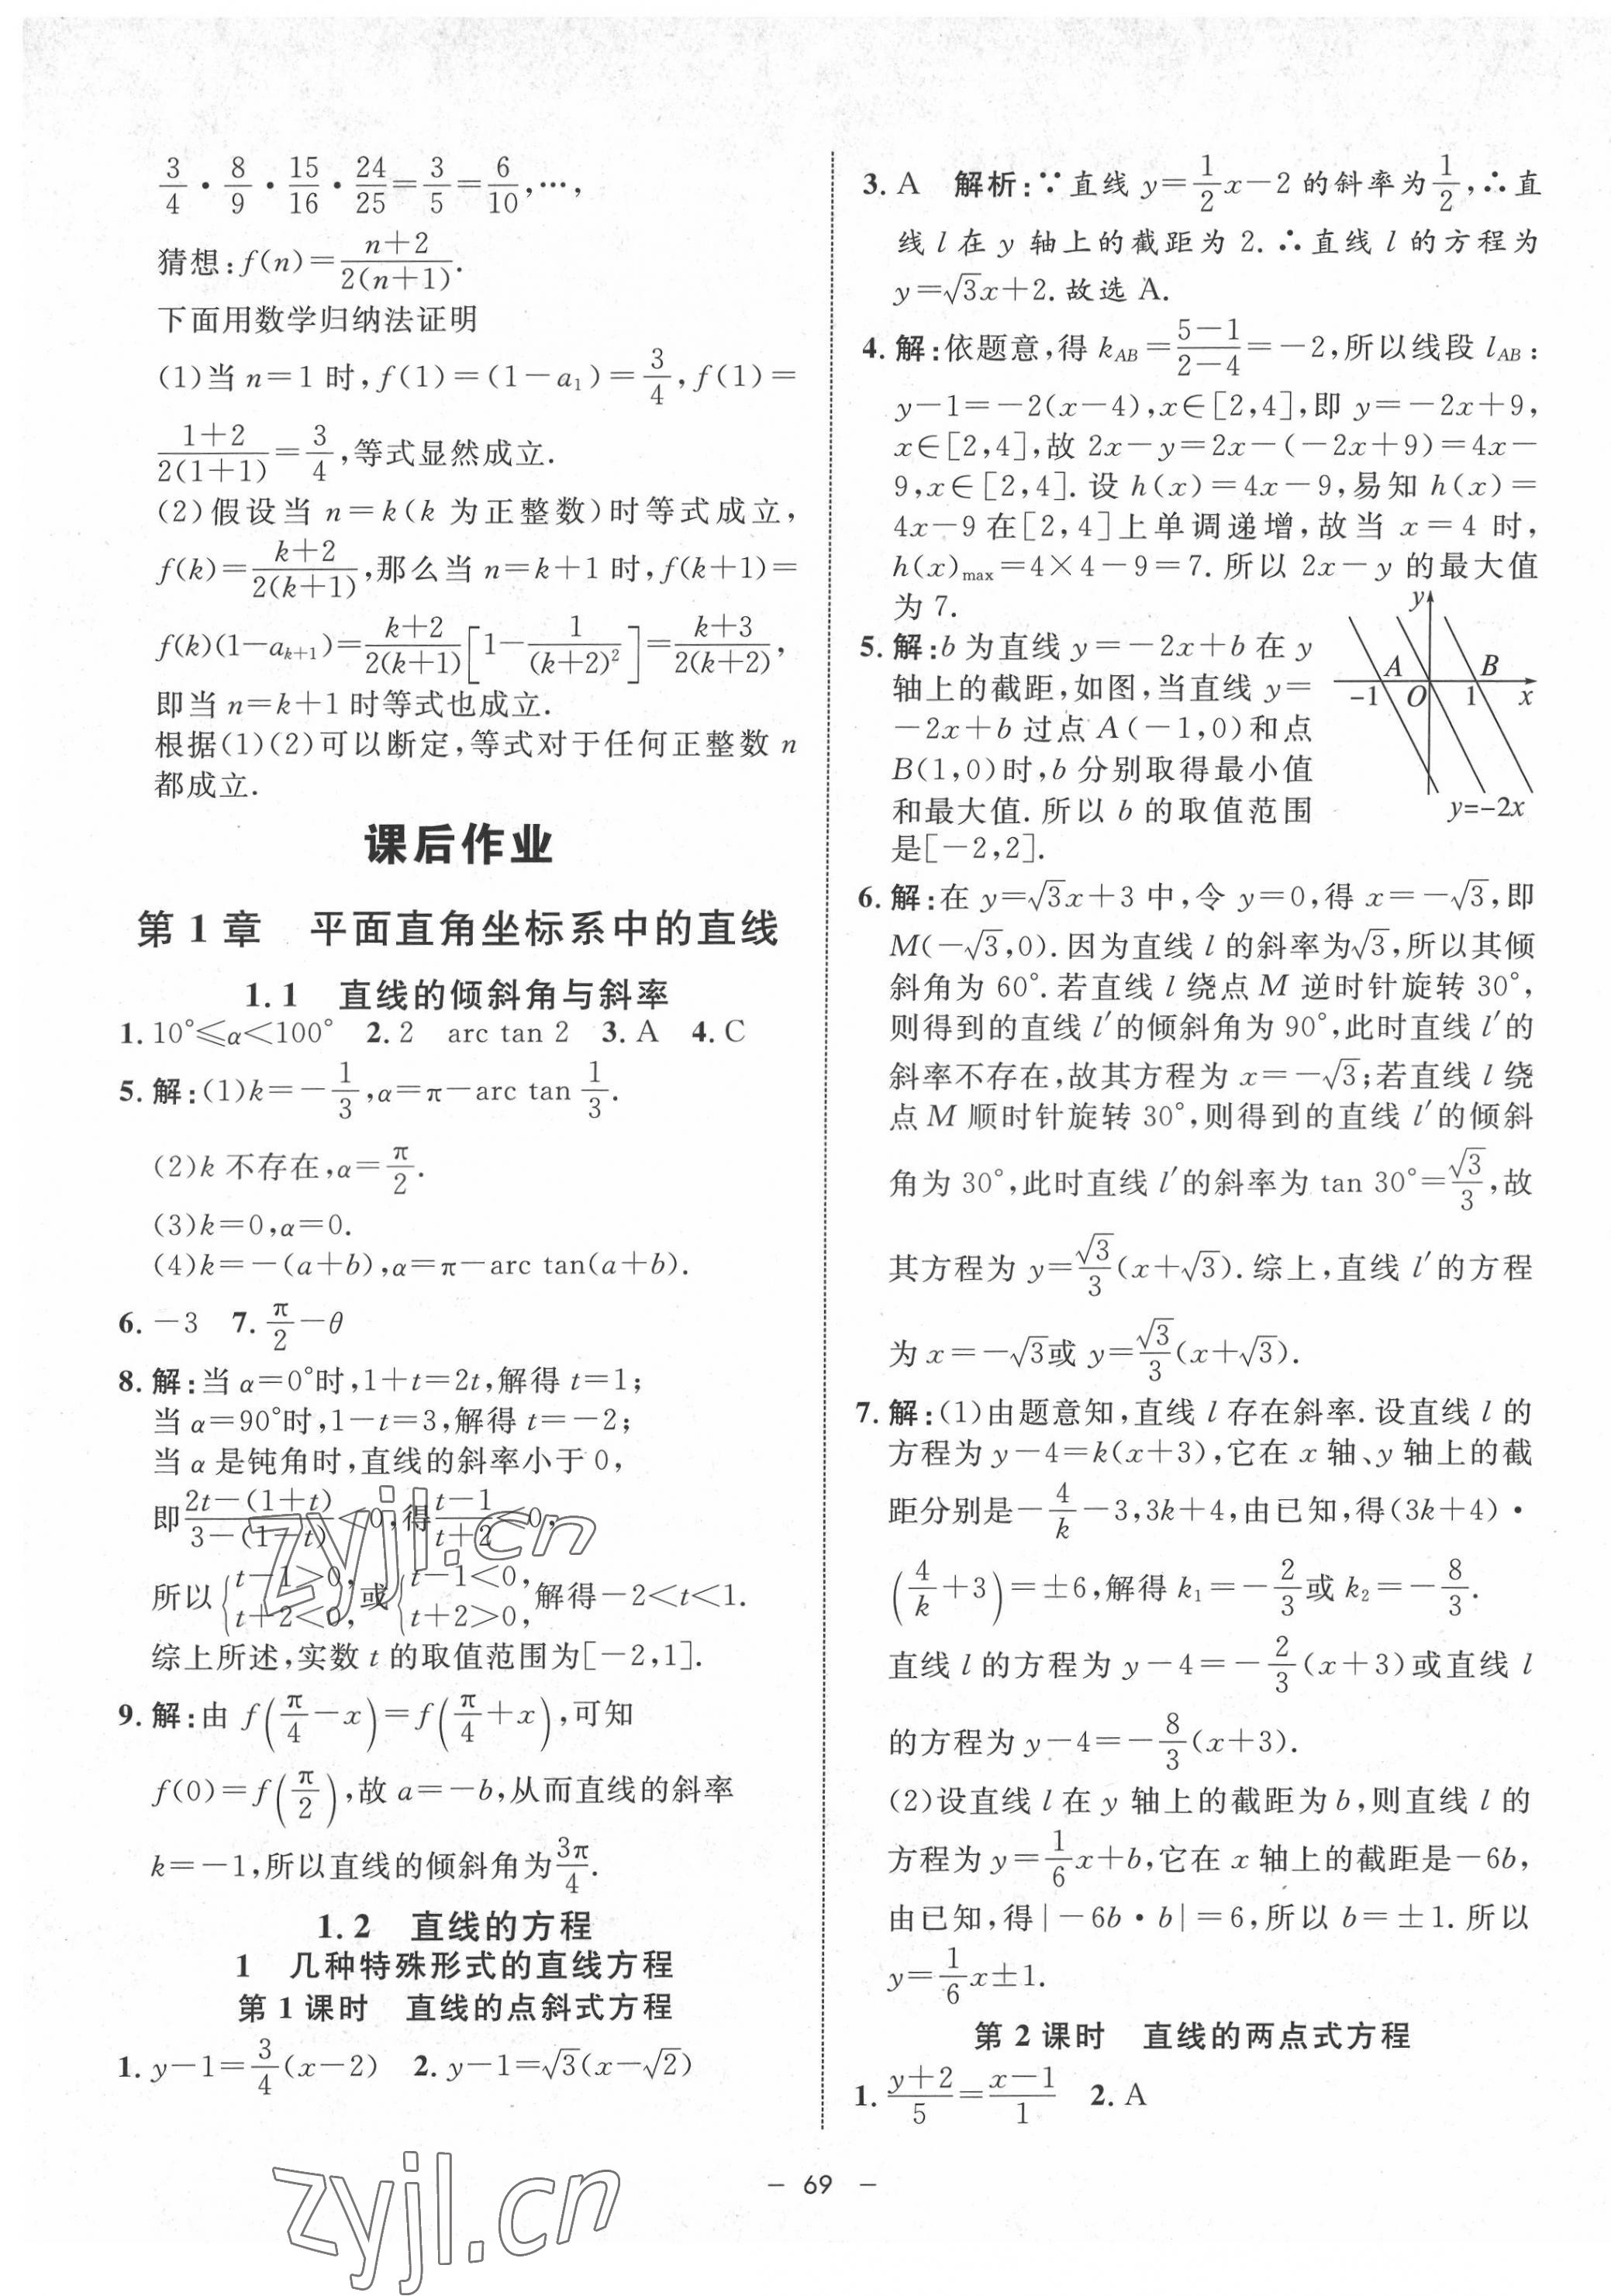 3/4 · 8/9 · 15/16 · 24/25 = 3/5 = 6/10, …,
猜想:f(n)=(n+2)/(2(n+1)).
下面用数学归纳法证明
(1)当 n=1 时,f(1)=(1-a₁)=3/4,f(1)=
(1+2)/(2(1+1))=3/4,等式显然成立.
(2)假设当 n=k(k 为正整数)时等式成立,
f(k)=(k+2)/(2(k+1)),那么当 n=k+1 时,f(k+1)=
f(k)(1-aₖ₊₁)=(k+2)/(2(k+1))[1-1/(k+2)²]=(k+3)/(2(k+2)),
即当 n=k+1 时等式也成立.
根据(1)(2)可以断定,等式对于任何正整数 n
都成立.
课后作业
第 1 章 平面直角坐标系中的直线
1.1 直线的倾斜角与斜率
1. 10°≤α<100° 2. 2 arc tan 2 3. A 4. C
5. 解:(1)k=-1/3,α=π-arc tan 1/3.
(2)k 不存在,α=π/2.
(3)k=0,α=0.
(4)k=-(a+b),α=π-arc tan(a+b).
6. -3 7. π/2-θ
8. 解:当 α=0°时,1+t=2t,解得 t=1;
当 α=90°时,1-t=3,解得 t=-2;
当 α 是钝角时,直线的斜率小于 0,
即(2t-(1+t))/(3-(1-t))<0,得(t-1)/(t+2)<0,
所以{t-1>0, t+2<0,或{t-1<0, t+2>0,解得-2<t<1.
综上所述,实数 t 的取值范围为[-2,1].
9. 解:由 f(π/4-x)=f(π/4+x),可知
f(0)=f(π/2),故 a=-b,从而直线的斜率
k=-1,所以直线的倾斜角为3π/4.
1.2 直线的方程
1 几种特殊形式的直线方程
第 1 课时 直线的点斜式方程
1. y-1=3/4(x-2) 2. y-1=√3(x-√2)
3. A 解析:∵直线 y=1/2x-2 的斜率为1/2,∴直
线 l 在 y 轴上的截距为 2.∴直线 l 的方程为
y=√3x+2.故选 A.
4. 解:依题意,得 k_AB=(5-1)/(2-4)=-2,所以线段 l_AB:
y-1=-2(x-4),x∈[2,4],即 y=-2x+9,
x∈[2,4],故 2x-y=2x-(-2x+9)=4x-
9,x∈[2,4].设 h(x)=4x-9,易知 h(x)=
4x-9 在[2,4]上单调递增,故当 x=4 时,
h(x)max=4×4-9=7.所以 2x-y 的最大值
为 7.
5. 解:b 为直线 y=-2x+b 在 y
轴上的截距,如图,当直线 y=
-2x+b 过点 A(-1,0)和点
B(1,0)时,b 分别取得最小值
和最大值.所以 b 的取值范围
是[-2,2].
y
A B
-1 O 1 x
y=-2x
6. 解:在 y=√3x+3 中,令 y=0,得 x=-√3,即
M(-√3,0).因为直线 l 的斜率为√3,所以其倾
斜角为 60°.若直线 l 绕点 M 逆时针旋转 30°,
则得到的直线 l′的倾斜角为 90°,此时直线 l′的
斜率不存在,故其方程为 x=-√3;若直线 l 绕
点 M 顺时针旋转 30°,则得到的直线 l′的倾斜
角为 30°,此时直线 l′的斜率为 tan 30°=√3/3,故
其方程为 y=√3/3(x+√3).综上,直线 l′的方程
为 x=-√3或 y=√3/3(x+√3).
7. 解:(1)由题意知,直线 l 存在斜率.设直线 l 的
方程为 y-4=k(x+3),它在 x 轴、y 轴上的截
距分别是-4/k-3,3k+4,由已知,得(3k+4)·
(4/k+3)=±6,解得 k₁=-2/3或 k₂=-8/3.
直线 l 的方程为 y-4=-2/3(x+3)或直线 l
的方程为 y-4=-8/3(x+3).
(2)设直线 l 在 y 轴上的截距为 b,则直线 l 的
方程为 y=1/6x+b,它在 x 轴上的截距是-6b,
由已知,得|-6b·b|=6,所以 b=±1.所以
y=1/6x±1.
第 2 课时 直线的两点式方程
1. (y+2)/5=(x-1)/1 2. A
- 69 -
zyjl.cn
zyjl.cn